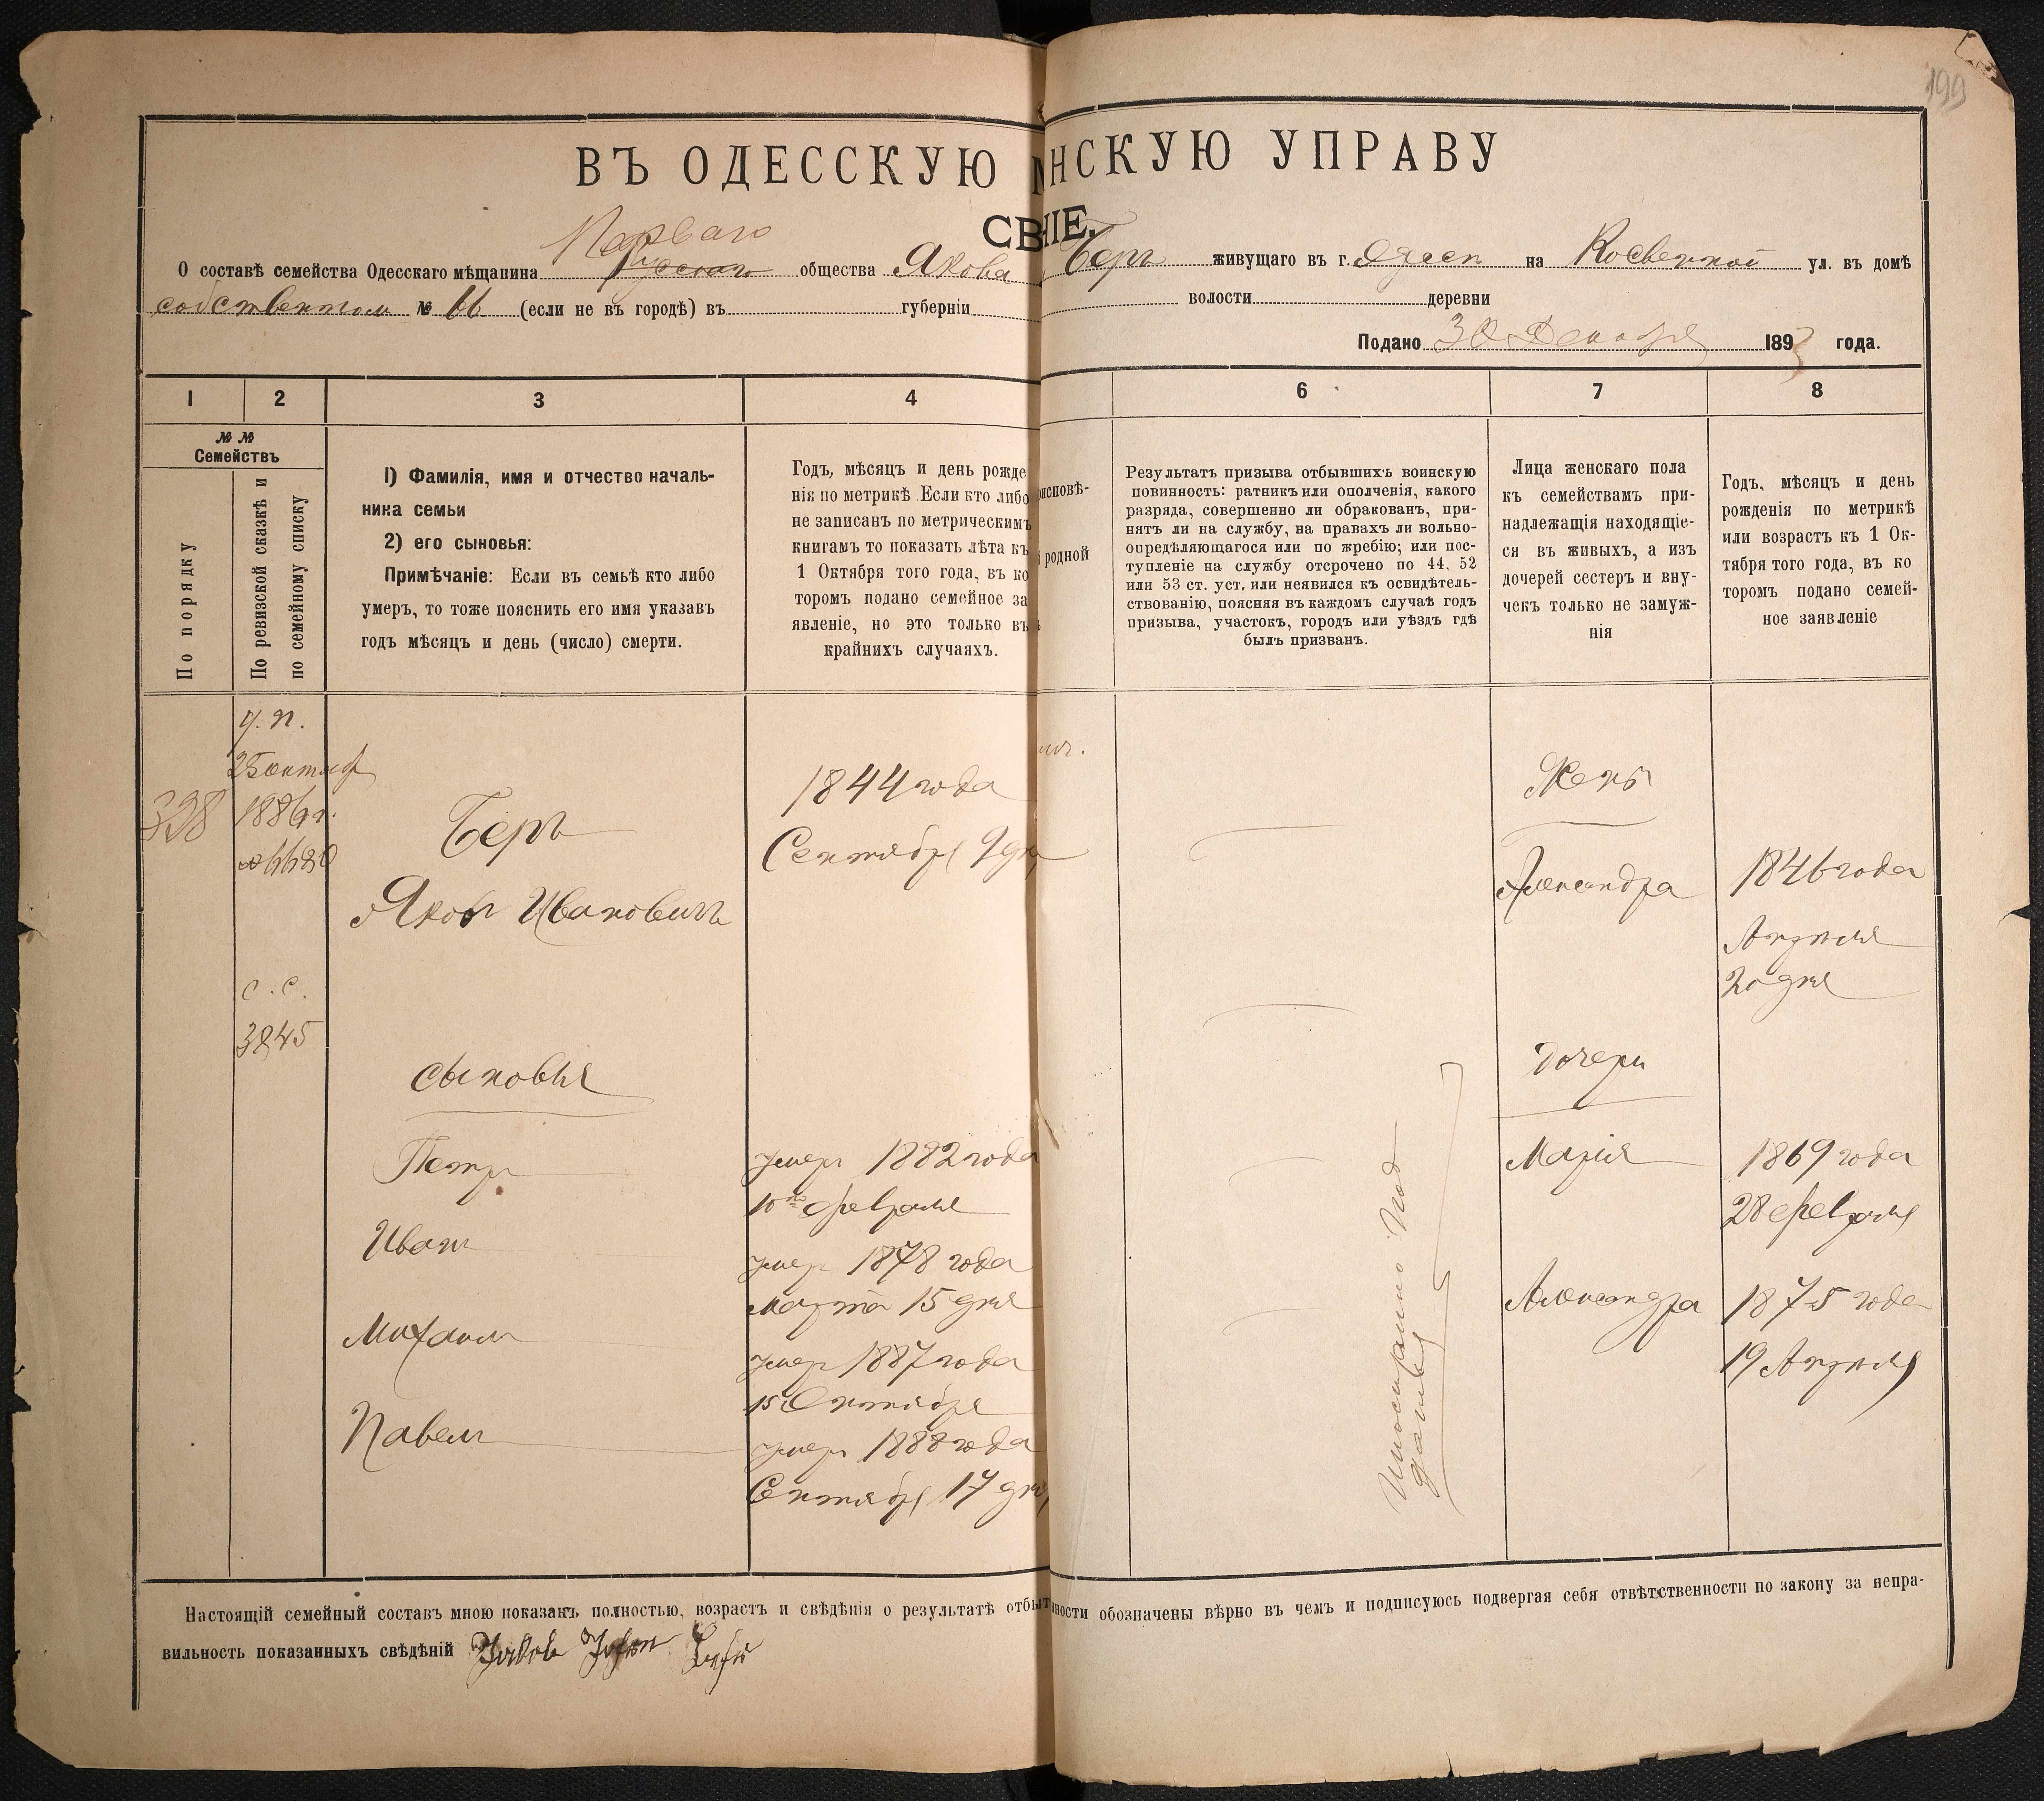 199
ВЪ ОДЕССКУЮ НСКУЮ УПРАВУ
СВ НІЕ.
Перваго
О составѣ семейства Одесскаго мѣщанина Русскаго общества Якова Беръ живущаго въ г. Одессѣ на Косвенной ул. въ домѣ
собственном № 66 (если не въ городѣ) въ губерніи волости деревни
Подано 30 Декабря 1893 года.
1 2 3 4 6 7 8
№ № Семействъ
По порядку
По ревизской сказкѣ и
по семейному списку
1) Фамилія, имя и отчество началь-
ника семьи
2) его сыновья:
Примѣчаніе: Если въ семьѣ кто либо
умеръ, то тоже пояснить его имя указавъ
годъ мѣсяцъ и день (число) смерти.
Годъ, мѣсяцъ и день рожде
нія по метрикѣ Если кто либо
не записанъ по метрическимъ
книгамъ то показать лѣта къ
1 Октября того года, въ ко
торомъ подано семейное за
явленіе, но это только въ
крайнихъ случаяхъ.
исповѣ-
родной
Результатъ призыва отбывшихъ воинскую
повинность: ратникъ или ополченія, какого
разряда, совершенно ли обракованъ, при-
нятъ ли на службу, на правахъ ли вольно-
опредѣляющагося или по жребію; или пос-
тупленіе на службу отсрочено по 44, 52
или 53 ст. уст. или неявился къ освидѣтель-
ствованію, поясняя въ каждомъ случаѣ годъ
призыва, участокъ, городъ или уѣздъ гдѣ
былъ призванъ.
Лица женскаго пола
къ семействамъ при-
надлежащія находящіе-
ся въ живыхъ, а изъ
дочерей сестеръ и вну-
чекъ только не замуж-
нія
Годъ, мѣсяцъ и день
рожденія по метрикѣ
или возрастъ къ 1 Ок-
тября того года, въ ко
торомъ подано семей-
ное заявленіе
398
у. п.
25 октяб
1886 г.
№ 6680
с. с.
3845
Беръ
Яковъ Ивановичъ
1844 года
Сентября 9 дня
Жена
Александра
1846 года
Апрѣля
20 дня
сыновья
дочери
Петръ
умеръ 1882 года
10го февраля
Марія
1869 года
28 февраля
Иванъ
умеръ 1878 года
Марта 15 дня
Александра
1875 года
19 Апрѣля
Михаилъ
умеръ 1887 года
15 Октября
Павелъ
умеръ 1888 года
Сентября 17 дня
Иностранно под
даный
Настоящій семейный составъ мною показанъ полностью, возрастъ и свѣдѣнія о результатѣ отбыт ности обозначены вѣрно въ чемъ и подписуюсь подвергая себя отвѣтственности по закону за непра-
вильность показанныхъ свѣдѣній Jakob Johan